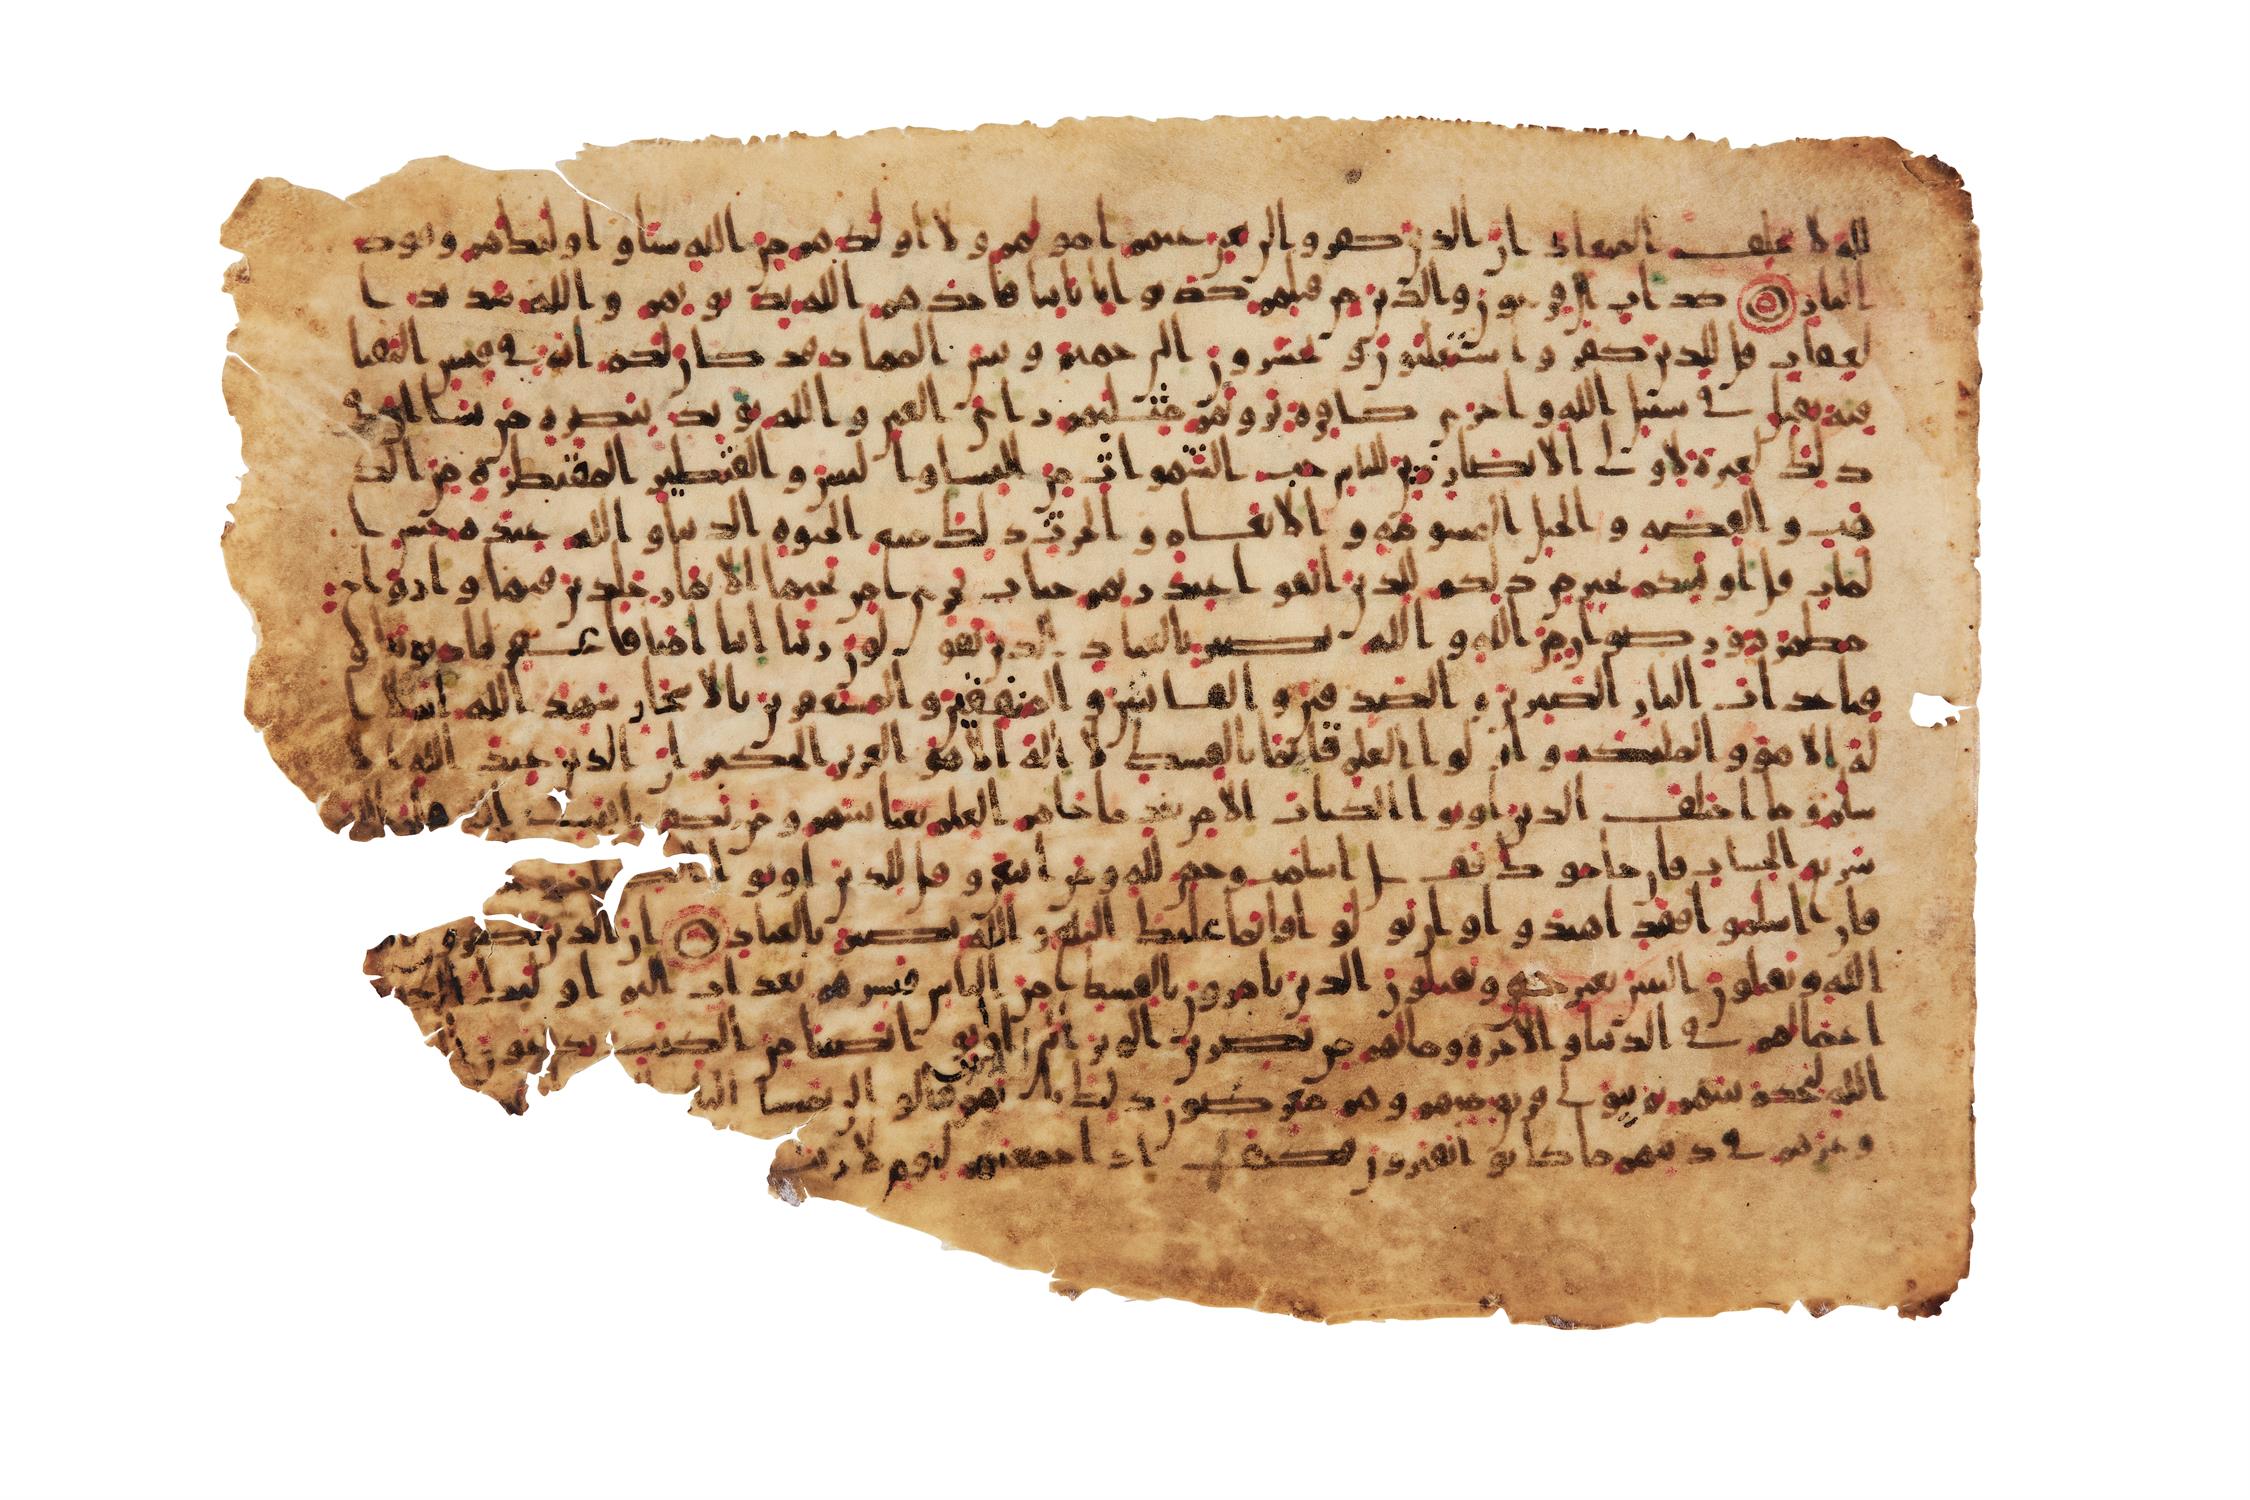 لله لا يخلف الميعاد ان الذين كفروا لن تغني عنهم اموالهم ولا اولدهم من الله شيا واوليك هم وقود
النار كداب ال فرعون والذين من قبلهم كذبوا باياتنا فاخذهم الله بذنوبهم والله شديد ا
لعقاب قل للذين كفروا ستغلبون وتحشرون الى جهنم وبيس المهاد قد كان لكم اية في فيتين التقتا
فية تقتل في سبيل الله واخرى كافرة يرونهم مثليهم راي العين والله يويد بنصره من يشا ان في
ذلك لعبرة لاولي الابصار زين للناس حب الشهوات من النساء والبنين والقنطير المقنطرة من الذ
هب والفضة والخيل المسومة والانعام والحرث ذلك متع الحيوة الدنيا والله عنده حسن ا
لماب قل اونبيكم بخير من ذلكم للذين اتقوا عند ربهم جنات تجري من تحتها الانهار خلدين فيها وازواج
مطهرة ورضوان من الله والله بصير بالعباد الذين يقولون ربنا اننا امنا فاغفر لنا ذنوبنا و
قنا عذاب النار الصبرين والصدقين والقانتين والمنفقين والمستغفرين بالاسحار شهد الله انه لا ا
له الا هو والمليكة واولوا العلم قايما بالقسط لا اله الا هو العزيز الحكيم ان الدين عند الله الا
سلم وما اختلف الذين اوتوا الكتاب الا من بعد ما جاهم العلم بغيا بينهم ومن يكفر بايت الله فان الله
سريع الحساب فان حاجوك فقل اسلمت وجهي لله ومن اتبعن وقل للذين اوتوا الكتب والامين
فان اسلموا فقد اهتدوا وان تولوا فانما عليك البلغ والله بصير بالعباد ان الذين يكفرون
الله ويقتلون النبين بغير حق ويقتلون الذين يامرون بالقسط من الناس فبشرهم بعذاب اليم اوليك الذين
اعملهم في الدنيا والاخرة وما لهم من نصرين الم تر الى الذين اوتوا نصيبا من الكتب يدعون
الله ليحكم بينهم ثم يتولى فريق منهم وهم معرضون ذلك بانهم قالوا لن تمسنا النا
وغرهم في دينهم ما كانوا يفترون فكيف اذا جمعنهم ليوم لا ريب